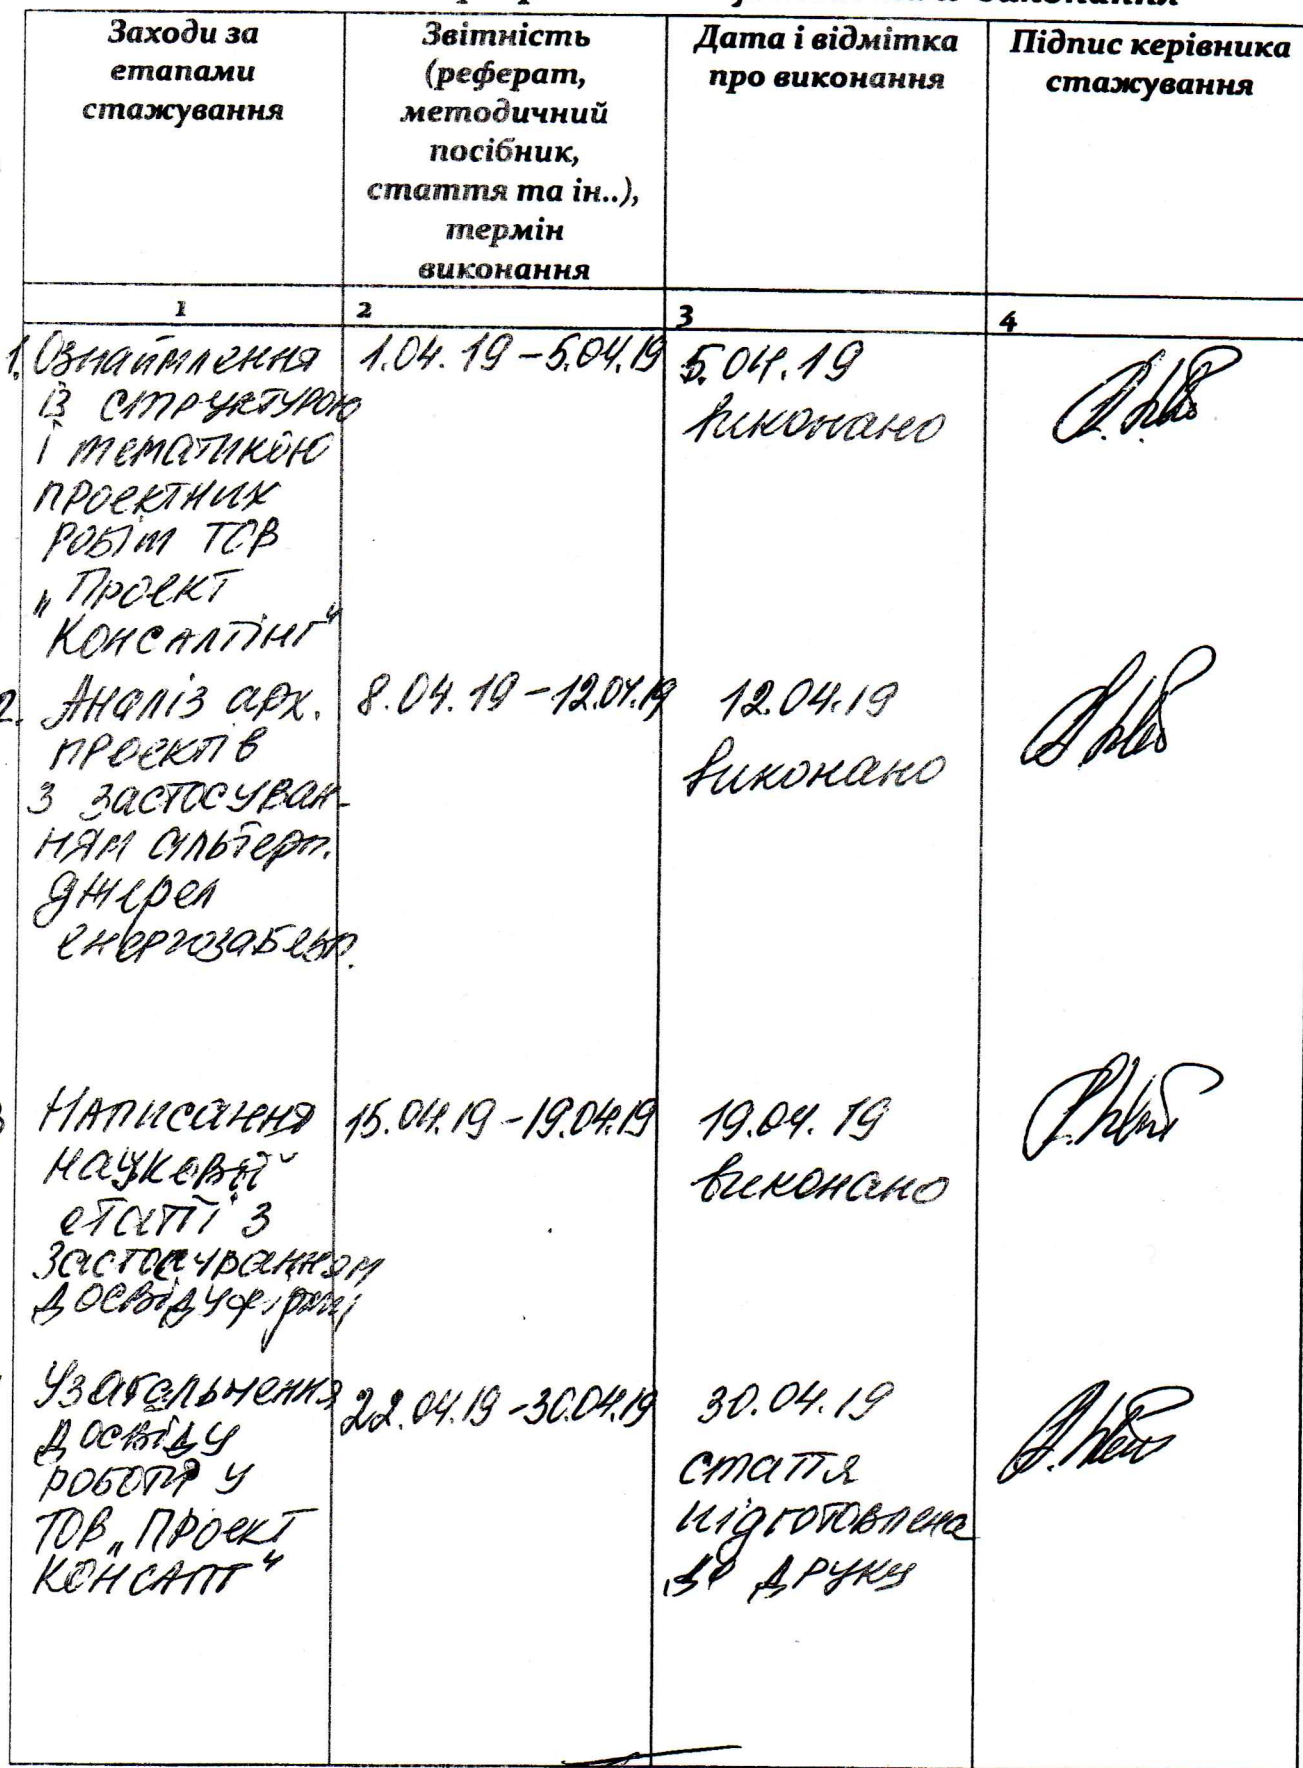 Заходи за
етапами
стажування
Звітність
(реферат,
методичний
посібник,
стаття та ін..),
термін
виконання
Дата і відмітка
про виконання
Підпис керівника
стажування
1
2
3
4
1. Ознаймлення
із структурою
і тематикою
проектних
робіт ТОВ
„Проект
Консалтінг"
1.04.19 – 5.04.19
5.04.19
виконано
2. Аналіз арх.
проектів
з застосуван-
ням альтерн.
джерел
енергозабезп.
8.04.19 – 12.04.19
12.04.19
виконано
3 Написання
наукової
статті з
застосуванням
досвіду фірми
15.04.19 – 19.04.19
19.04.19
виконано
Узагальнення
досвіду
роботи у
ТОВ „Проект
Консалт"
22.04.19 – 30.04.19
30.04.19
стаття
підготовлена
до друку